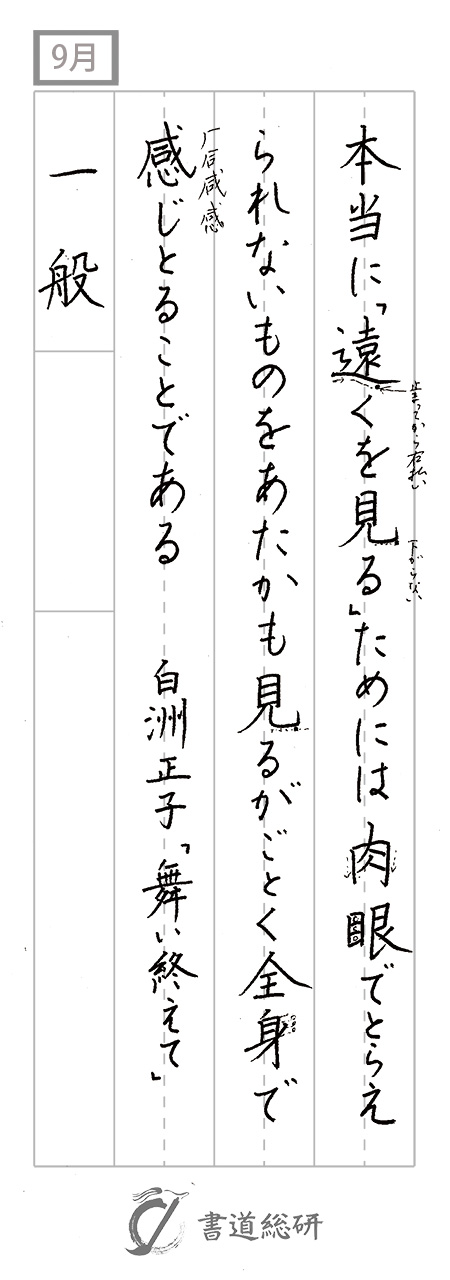 9月
本当に「遠くを見る」ためには肉眼でとらえ
止まってから右払い
下がらない
られないものをあたかも見るがごとく全身で
感じとることである　白洲正子「舞い終えて」
一般
書道総研